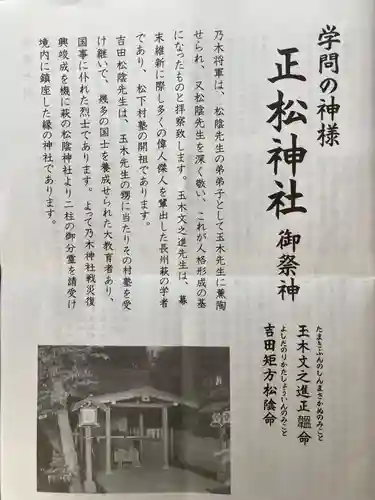 学問の神様
正松神社 御祭神
たまきぶんのしんまさかぬのみこと
玉木文之進正韞命
よしだのりかたしょういんのみこと
吉田矩方松陰命
乃木将軍は、松陰先生の弟弟子として玉木先生に薫陶
せられ、又松陰先生を深く敬い、これが人格形成の基
になったものと拝察致します。玉木文之進先生は、幕
末維新に際し多くの偉人傑人を輩出した長州萩の学者
であり、松下村塾の開祖であります。
吉田松陰先生は、玉木先生の甥に当たりその村塾を受
け継いで、幾多の国士を養成せられた大教育者あり、
国事に仆れた烈士であります。よって乃木神社戦災復
興竣成を機に萩の松陰神社より二柱の御分霊を請受け
境内に鎮座した縁の神社であります。